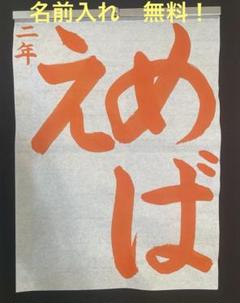 名前入れ　無料！
めば
え
二年